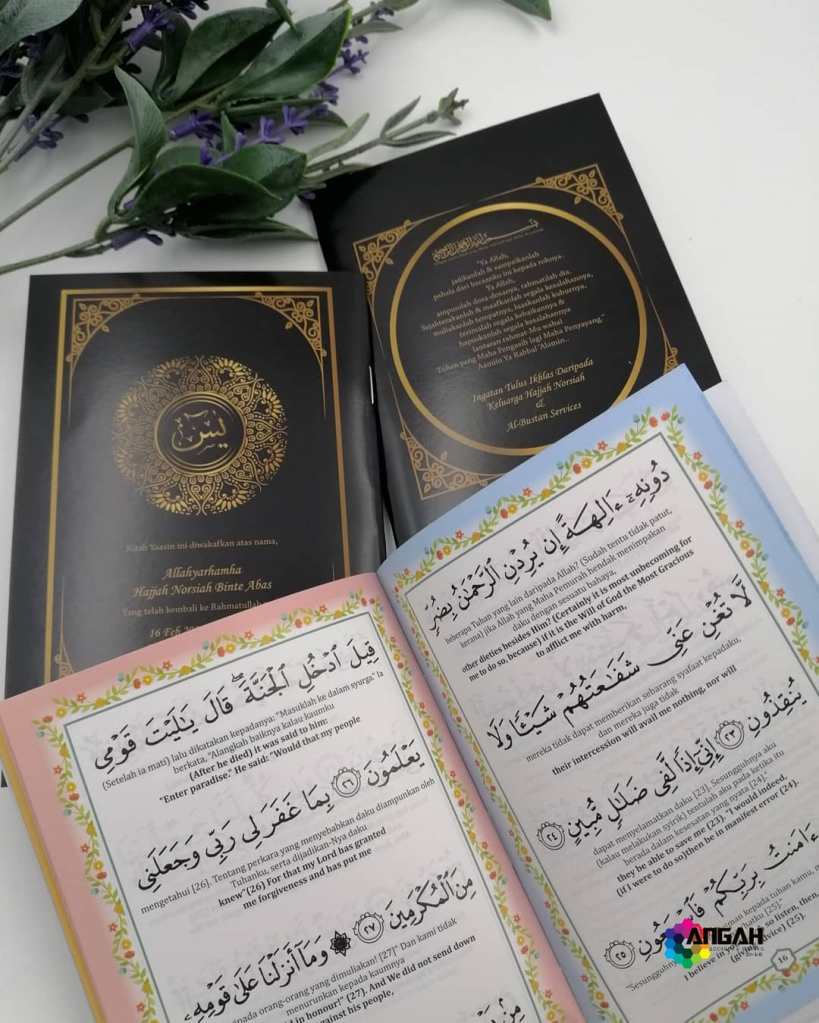 يس
Kitab Yaasin ini diwakafkan atas nama,
Allahyarhamha
Hajjah Norsiah Binte Abas
Yang telah kembali ke Rahmatullah
16 Feb
"Ya Allah,
jadikanlah & sampaikanlah
pahala dari bacaanku ini kepada
Ya Allah,
ampunilah dosa dosanya, rahmatilah dia,
Sejahterakanlah & maafkanlah segala kesalahannya,
muliakanlah tempatnya, luaskanlah kuburnya,
terimalah segala kebaikannya &
hapuskanlah segala kesalahannya
lantaran rahmat-Mu wahai
Tuhan yang Maha Pengasih lagi Maha Penyayang."
Aamiin Ya Rabbal 'Alamin..
Ingatan Tulus Ikhlas Daripada
Keluarga Hajjah Norsiah
&
Al-Bustan Services
دُونِهِۦٓ ءَالِهَةً إِن يُرِدْنِ ٱلرَّحْمَٰنُ بِضُرٍّ
beberapa Tuhan yang lain daripada Allah? (Sudah tentu tidak patut,
kerana) jika Allah yang Maha Pemurah hendak menimpakan
daku dengan sesuatu bahaya,
other dieties besides Him? (Certainly it is most unbecoming for
me to do so, because) if it is the Will of God the Most Gracious
to afflict me with harm,
لَّا تُغْنِ عَنِّى شَفَٰعَتُهُمْ شَيْـًٔا وَلَا
mereka tidak dapat memberikan sebarang syafaat kepadaku,
dan mereka juga tidak
their intercession will avail me nothing, nor will
يُنقِذُونِ ٢٣ إِنِّىٓ إِذًا لَّفِى ضَلَٰلٍ مُّبِينٍ ٢٤
dapat menyelamatkan daku [23]. Sesungguhnya aku
(kalau melakukan syirik) tentulah aku pada ketika itu
berada dalam kesesatan yang nyata [24]."
they be able to save me (23). "I would indeed,
(if I were to do so)then be in manifest error (24).
ءَامَنتُ بِرَبِّكُمْ فَٱسْمَعُونِ ٢٥
"Sesungguhnya kepada tuhan kamu,
[25]."
I believe in so listen, then,
(25).
16
قِيلَ ٱدْخُلِ ٱلْجَنَّةَ ۖ قَالَ يَٰلَيْتَ قَوْمِى
(Setelah ia mati) lalu dikatakan kepadanya: "Masuklah ke dalam syurga" ia
berkata, "Alangkah baiknya kalau kaumku
(After he died) it was said to him:
"Enter paradise." He said: "Would that my people
يَعْلَمُونَ ٢٦ بِمَا غَفَرَ لِى رَبِّى وَجَعَلَنِى
mengetahui [26]. Tentang perkara yang menyebabkan daku diampunkan oleh
Tuhanku, serta dijadikan-Nya daku
knew"(26) For that my Lord has granted
me forgiveness and has put me
مِنَ ٱلْمُكْرَمِينَ ٢٧ وَمَآ أَنزَلْنَا عَلَىٰ قَوْمِهِۦ
orang-orang yang dimuliakan! [27]" Dan kami tidak
menurunkan kepada kaumnya
in honour!" (27). And We did not send down
against his people,
ANGAH